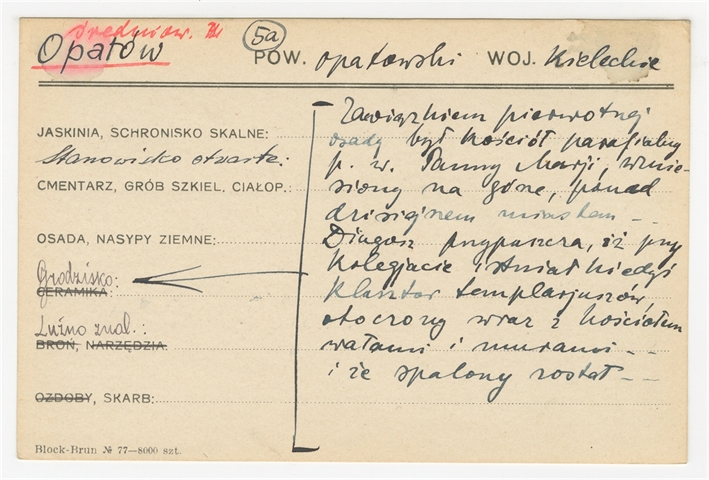 średniow.
Opatów 5a POW. opatowski WOJ. Kieleckie
JASKINIA, SCHRONISKO SKALNE:
Stanowisko otwarte:
CMENTARZ, GRÓB SZKIEL. CIAŁOP.:
OSADA, NASYPY ZIEMNE:
Grodzisko:
CERAMIKA:
Luźno znal.:
BROŃ, NARZĘDZIA
OZDOBY, SKARB:
Zawiązkiem pierwotnej
osady był kościół parafialny
p. w. Panny Marji, wznie-
siony na górze, ponad
dzisiejszem miastem --
Długosz przypuszcza, iż przy
Kolegjacie istniał kiedyś
klasztor templarjuszów,
otoczony wraz z kościołem
wałami i murami --
i że spalony został --
Block-Brun № 77—8000 szt.